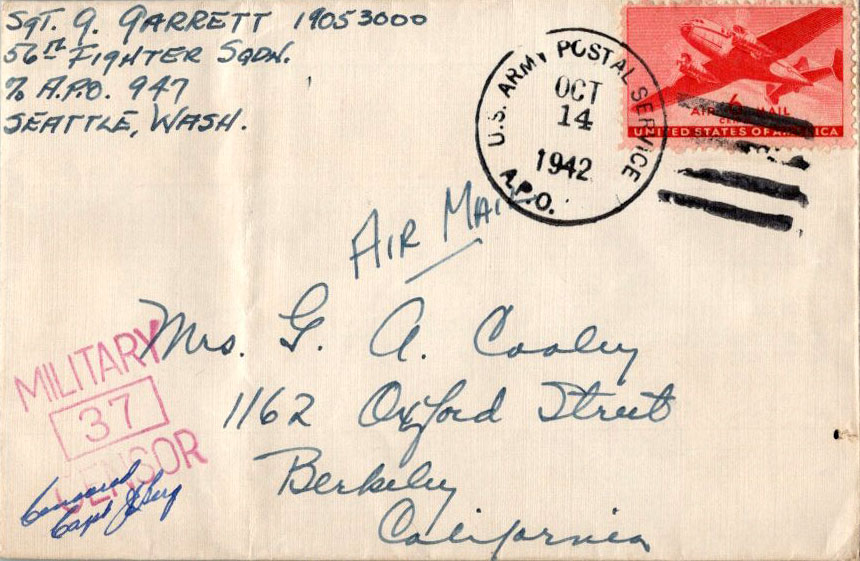 SGT. G. GARRETT 19053000
56TH FIGHTER SQDN.
% A.P.O. 947
SEATTLE, WASH.
U.S. ARMY POSTAL SERVICE
OCT
14
1942
A.P.O.
6¢
AIR MAIL
UNITED STATES OF AMERICA
AIR MAIL
Mrs. G. A. Cooley
1162 Oxford Street
Berkeley
California
MILITARY
37
CENSOR
Censored
Capt